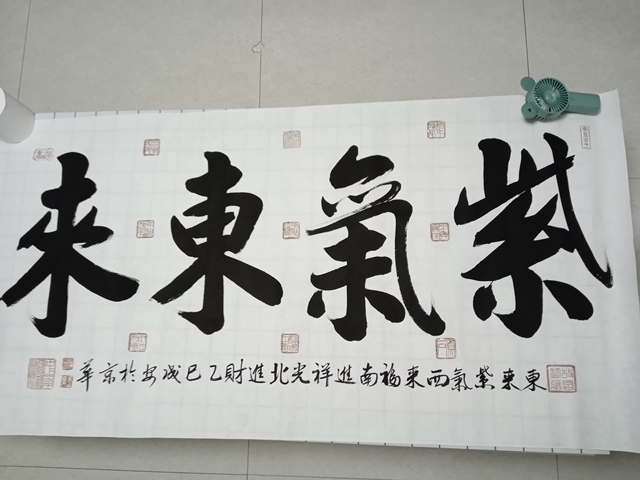 紫氣東來
東來紫氣西來福南進祥光北進財乙巳成安於京華